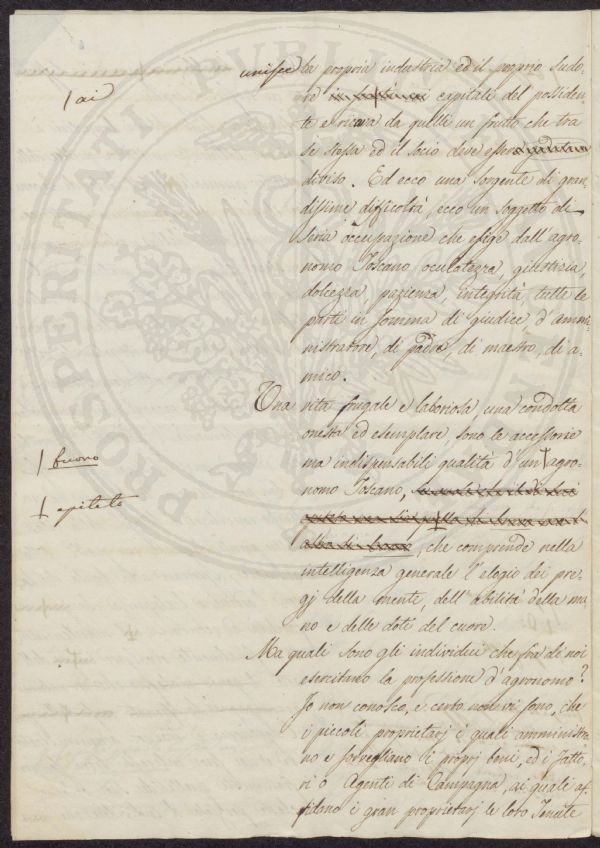 unisce la propria industria ed il proprio sudo-
re capitali del possiden-
te e ricava da quelli un frutto che tra
se stesso ed il socio deve esser
diviso. Ed ecco una sorgente di gran-
dissime difficoltà, ecco un soggetto di
seria occupazione che esige dall'agro-
nomo Toscano oculatezza, giustizia,
dolcezza, pazienza, integrità, tutte le
parti in somma di giudice, d'ammi-
nistratore, di padre, di maestro, di a-
mico.
Una vita frugale e laboriosa, una condotta
onesta ed esemplare, sono le accessorie
ma indispensabili qualità d'un agro-
nomo Toscano,
che comprende nella
intelligenza generale l'elogio dei pre-
gj della mente, dell'abilità della ma-
no e delle doti del cuore.
Ma quali sono gli individui che fra de noi
esercitano la professione d'agronomo?
Io non conosco, e certo non vi sono, che
i piccoli proprietarj i quali amministra-
no e sorvegliano i proprj beni, ed i Fatto-
ri o Agenti di Campagna, ai quali af-
fidano i gran proprietarj le loro Tenute
/ ai
/ buono
epiteto
PROSPERITATI PUBLICAE